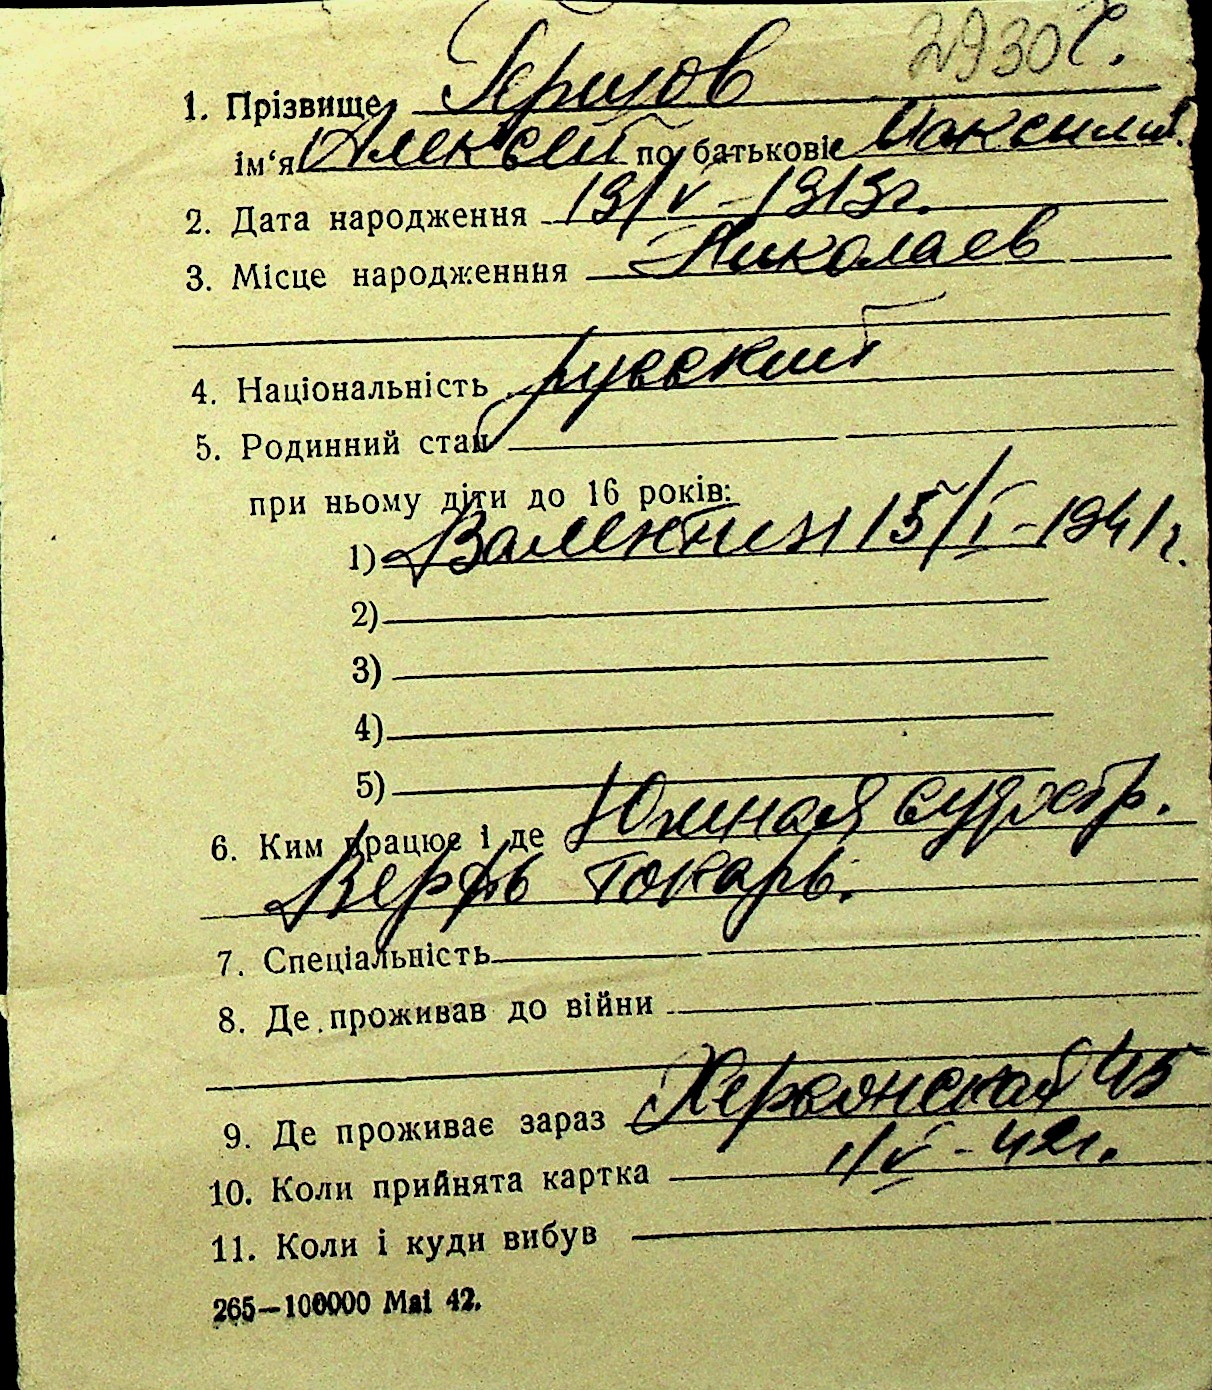 2930 г.
1. Прізвище Герцов
ім‘я Алексей по батькові Максим.
2. Дата народження 19/V-1913г.
3. Місце народженння Николаев
4. Національність русский
5. Родинний стан
при ньому діти до 16 років:
1) Валентин 15/I-1941г.
2)
3)
4)
5)
6. Ким працює і де Южная судостр.
Верфь токарь.
7. Спеціальність
8. Де проживав до війни
9. Де проживає зараз Херсонская 45
10. Коли прийнята картка 1/V-42г.
11. Коли і куди вибув
265—100000 Mai 42.